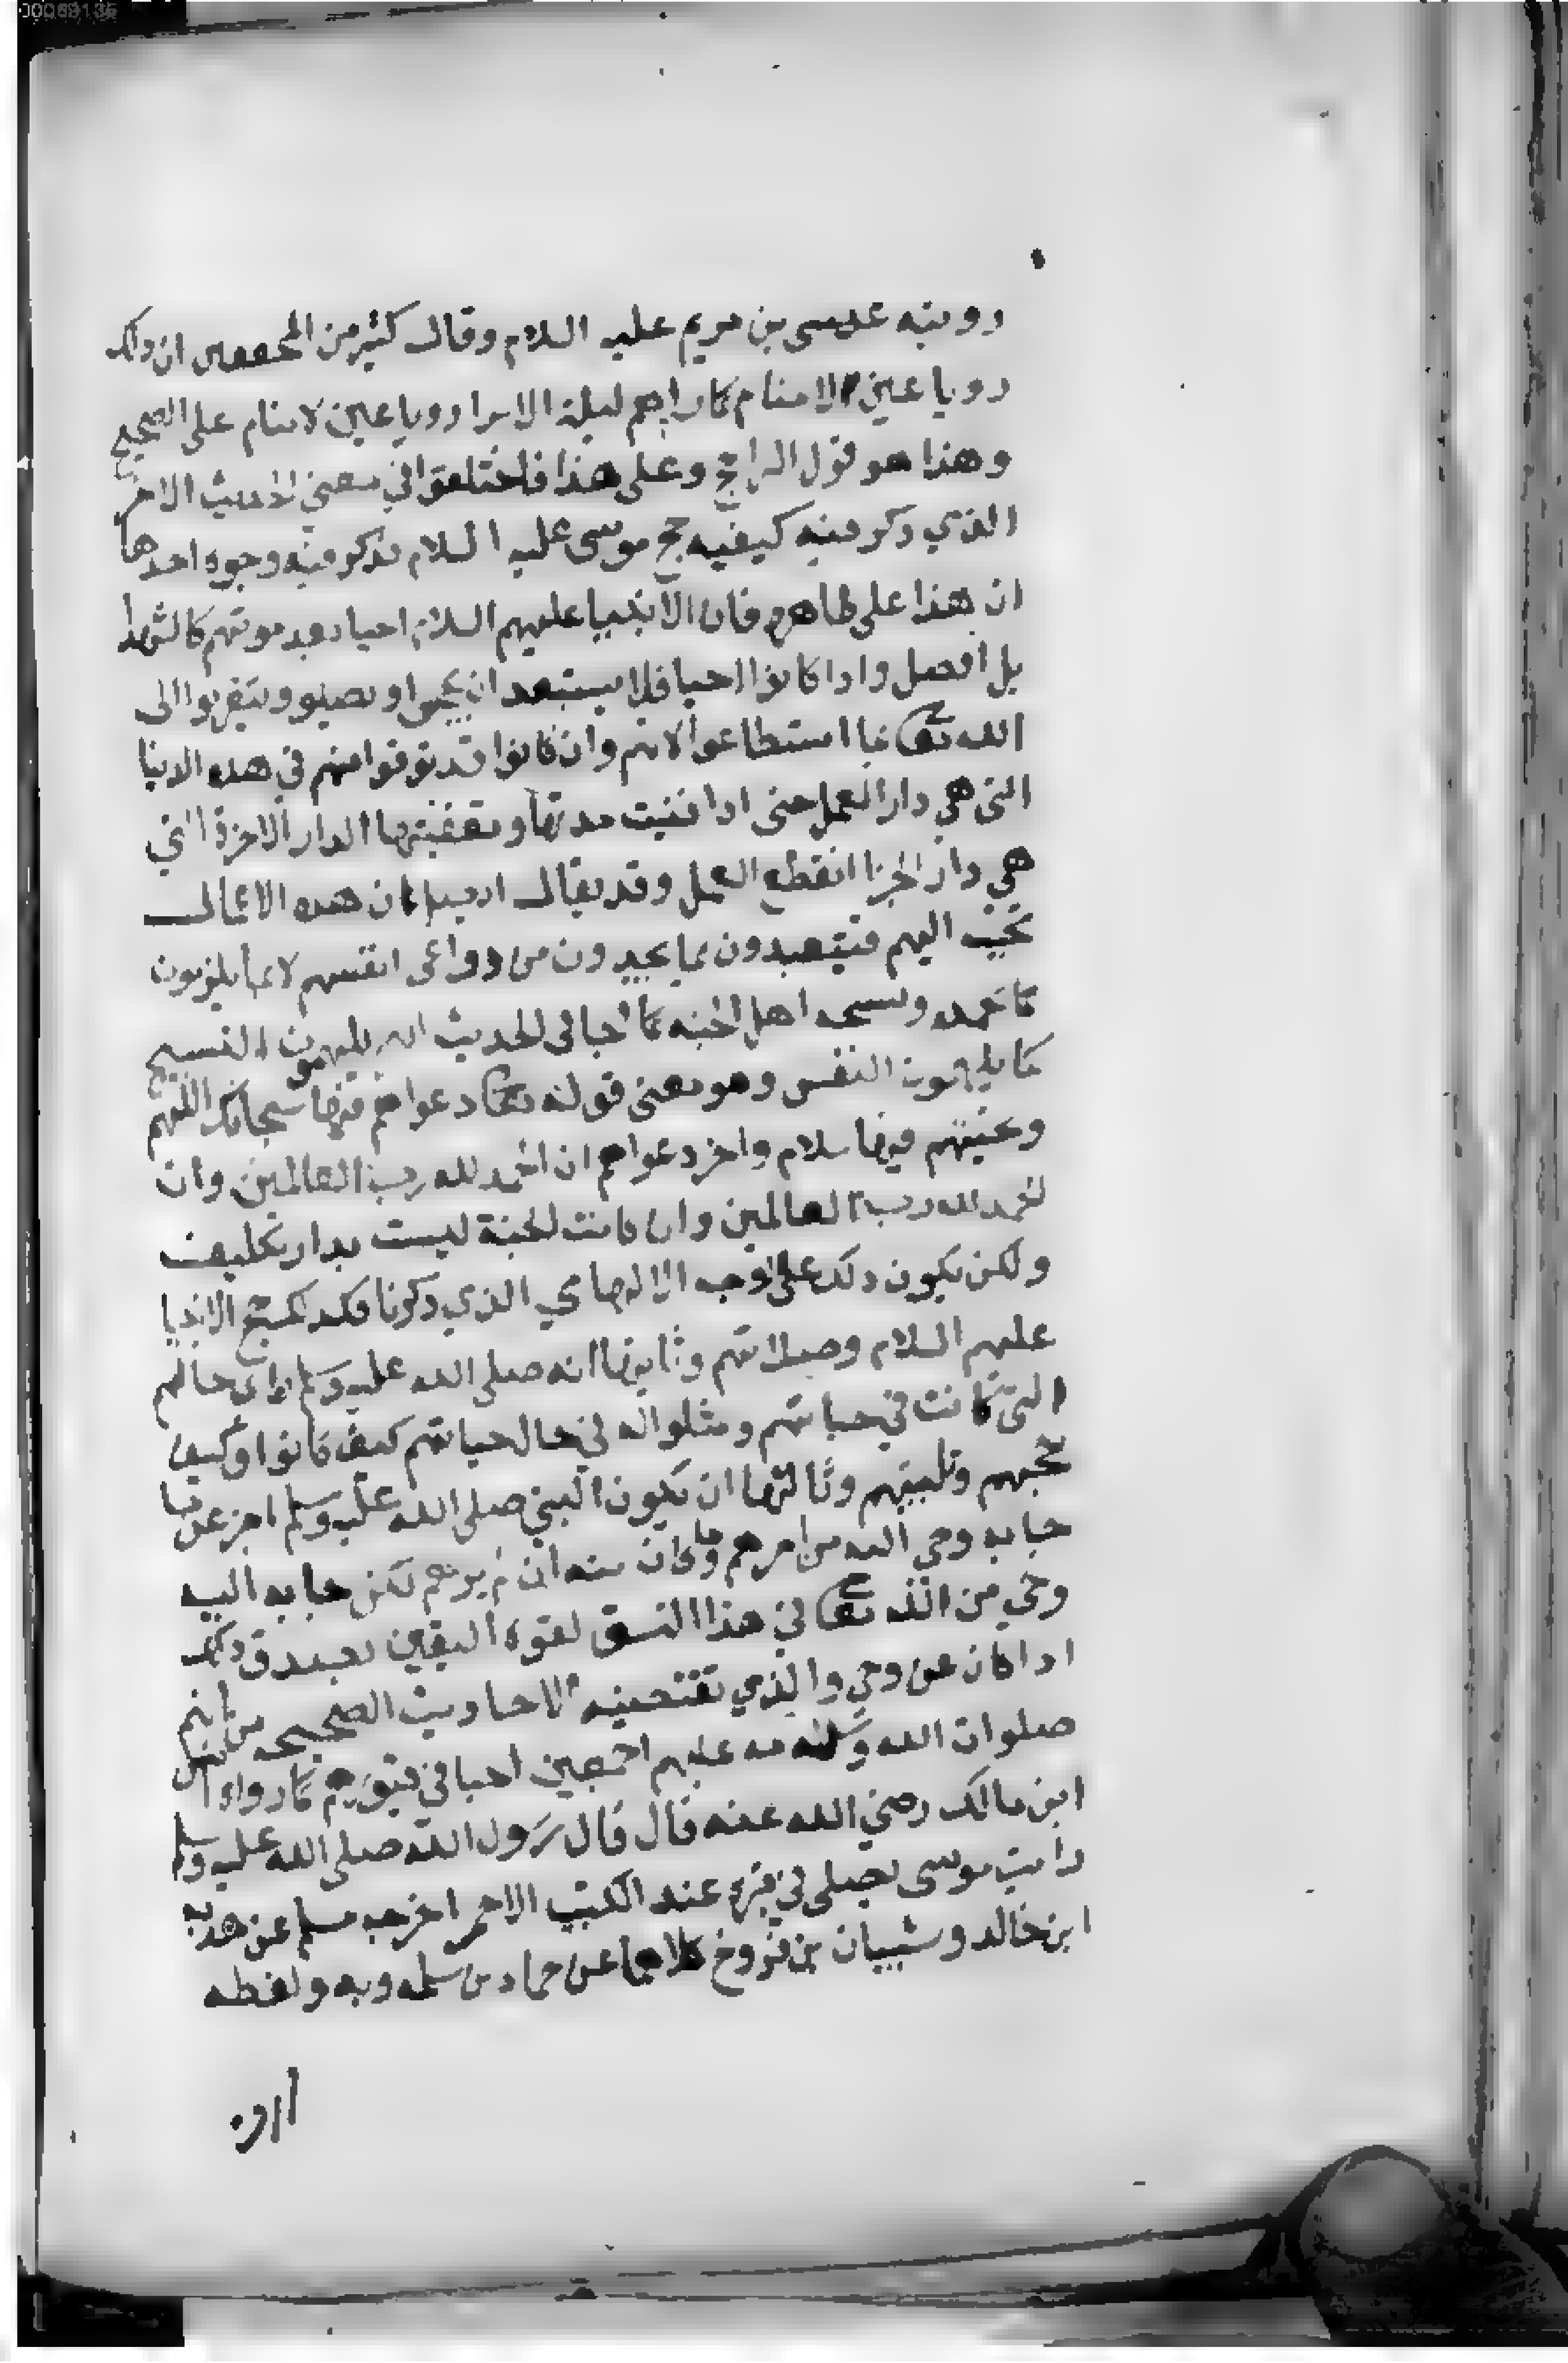 00069135
رويته عيسى بن مريم عليه السلام وقال كثير من المحققين ان ذلك
رويا عين لا منام كما راهم ليلة الاسرا رويا عين لا منام على الصحيح
وهذا هو قول الراجح وعلى هذا فاختلفوا في معنى الحديث الاخر
الذي ذكر فيه كيفيه حج موسى عليه السلام فذكر فيه وجوه احدها
ان هذا على ظاهره فان الانبيا عليهم السلام احيا بعد موتهم كالشهدا
بل افضل واذا كانوا احيا فلا يستبعد ان يحجوا ويصلو ويتقربوا الى
الله تعالى بما استطاعوا لانهم وان كانوا قد توفوا منهم في هذه الدنيا
التي هي دار العمل حتى اذا فنيت مدتها وتعقبتها الدار الاخرة التي
هي دار الجزا انقطع العمل وقد يقال ان هذه الاعمال
تحبب اليهم فيتعبدون بما يجدون من دواعي انفسهم لا بما يلزمون
كما حمده وتسبيحه اهل الجنه كما جا في الحديث انهم يلهمون التسبيح
كما يلهمون النفس وهو معنى قوله تعالى دعواهم فيها سبحانك اللهم
وتحيتهم فيها سلام واخر دعواهم ان الحمد لله رب العالمين وان
الحمد لله رب العالمين وان كانت الجنة ليست بدار تكليف
ولكن يكون ذلك على الوجه الالهامي الذي ذكرنا فكذلك حج الانبيا
عليهم السلام وصلاتهم وثانيها انه صلى الله عليه وسلم ارى حالهم
التي كانت في حياتهم ومثلوا له في حال حياتهم كيف كانوا وكيف
حجهم وتلبيتهم وثالثها ان يكون النبي صلى الله عليه وسلم اخبر عن ما
جا به وحي الله من امرهم وما كان منه ان لم يرهم لكن جا به اليه
وحي من الله تعالى في هذا النسق لقوه اليقين بصدق ذلك
اذا كان عن وحي والذي تقتضيه الاحاديث الصحيحه من انهم
صلوات الله وسلامه عليهم اجمعين احيا في قبورهم كما رواه انس
ابن مالك رضي الله عنه قال قال رسول الله صلى الله عليه وسلم
رايت موسى يصلي في قبره عند الكثيب الاحمر اخرجه مسلم عن هدبه
ابن خالد وشيبان بن فروخ كلاهما عن حماد بن سلمه وبه ولفظه